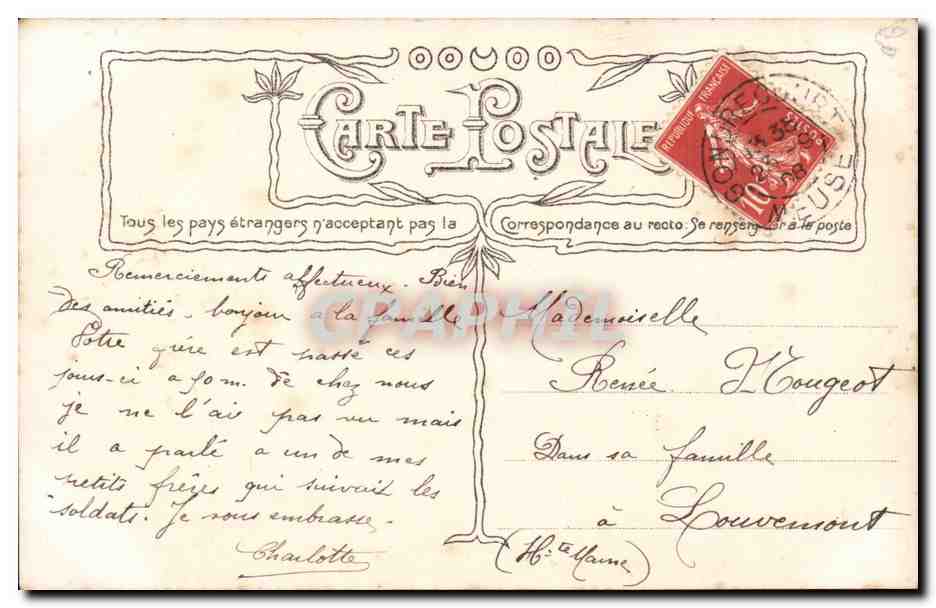 CARTE POSTALE
Tous les pays étrangers n'acceptant pas la Correspondance au recto. Se renseigner à la poste
REPUBLIQUE FRANÇAISE
POSTES
10
GONDRECOURT
MEUSE
08
CPAPHIL
Remerciements affectueux. Bien
des amitiés - bonjour a la famille
Votre frère est passé ces
jours-ci a 50 m. de chez nous
je ne l'ai pas vu mais
il a parlé a un de mes
petits frères qui suivait les
soldats. Je vous embrasse.
Charlotte
Mademoiselle
Renée Mougeot
Dans sa famille
à Louvemont
(Hte Marne)